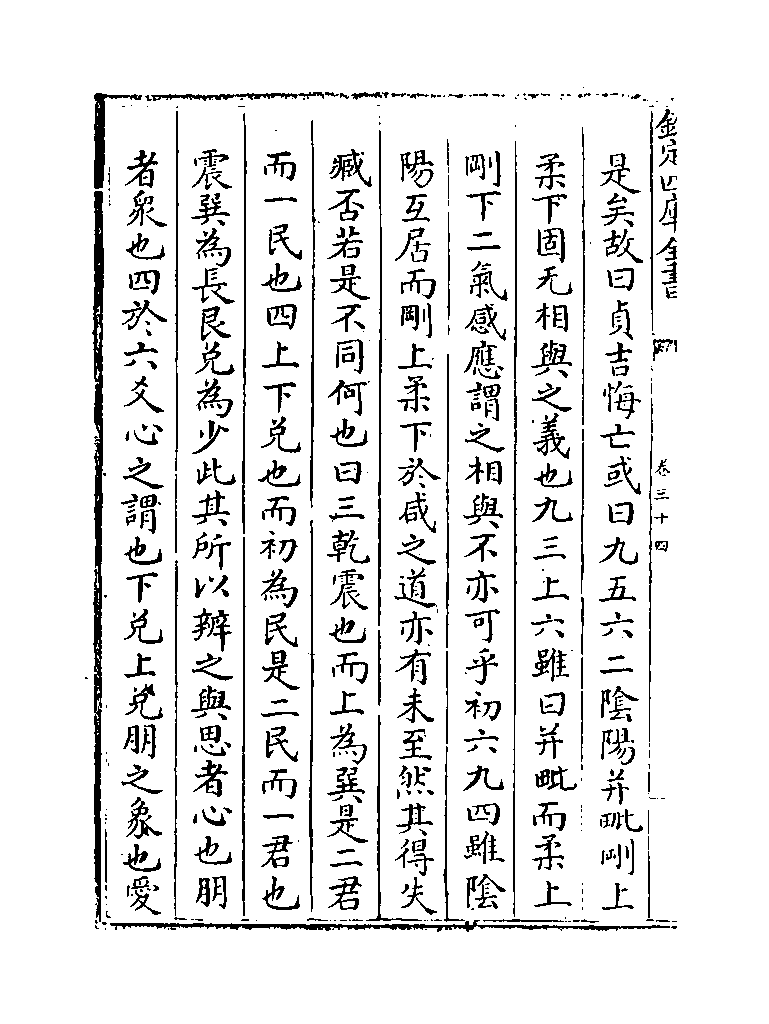 欽定四庫全書
卷三十四
是矣故曰貞吉悔亡或曰九五六二陰陽并毗剛上
柔下固无相與之義也九三上六雖曰并毗而柔上
剛下二氣感應謂之相與不亦可乎初六九四雖陰
陽互居而剛上柔下於咸之道亦有未至然其得失
臧否若是不同何也曰三乾震也而上為巽是二君
而一民也四上下兌也而初為民是二民而一君也
震巽為長艮兌為少此其所以辨之與思者心也朋
者衆也四於六爻心之謂也下兌上兌朋之象也愛